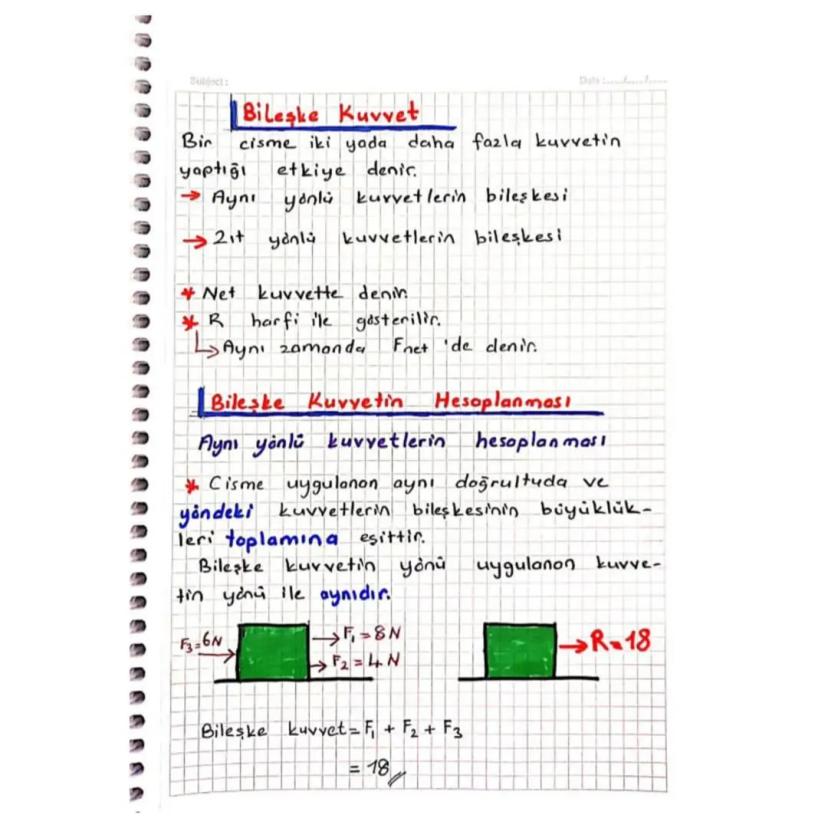 Subject:
Date:....../....../......
Bileşke Kuvvet
Bir cisme iki yada daha fazla kuvvetin
yaptığı etkiye denir.
→ Aynı yönlü kuvvetlerin bileşkesi
→ Zıt yönlü kuvvetlerin bileşkesi
* Net kuvvette denir.
* R harfi ile gösterilir.
↳ Aynı zamanda Fnet 'de denir.
Bileşke Kuvvetin Hesaplanması
Aynı yönlü kuvvetlerin hesaplanması
* Cisme uygulanan aynı doğrultuda ve
yöndeki kuvvetlerin bileşkesinin büyüklük-
leri toplamına eşittir.
Bileşke kuvvetin yönü uygulanan kuvve-
tin yönü ile aynıdır.
F₃=6N → → F₁=8N
→ F₂=4N
→ R=18
Bileşke kuvvet = F₁ + F₂ + F₃
= 18